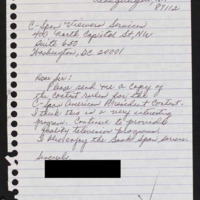 87112
C-Span Viewer Services
400 North Capitol St, NW
Suite 650
Washington, DC 20001
Dear Sir:
Please send me a copy of
the contest rules for the
C-Span American President Contest.
I think this is a very interesting
program. Continue to provide
quality television programs
I also enjoy the Book Span Series.
Sincerely,